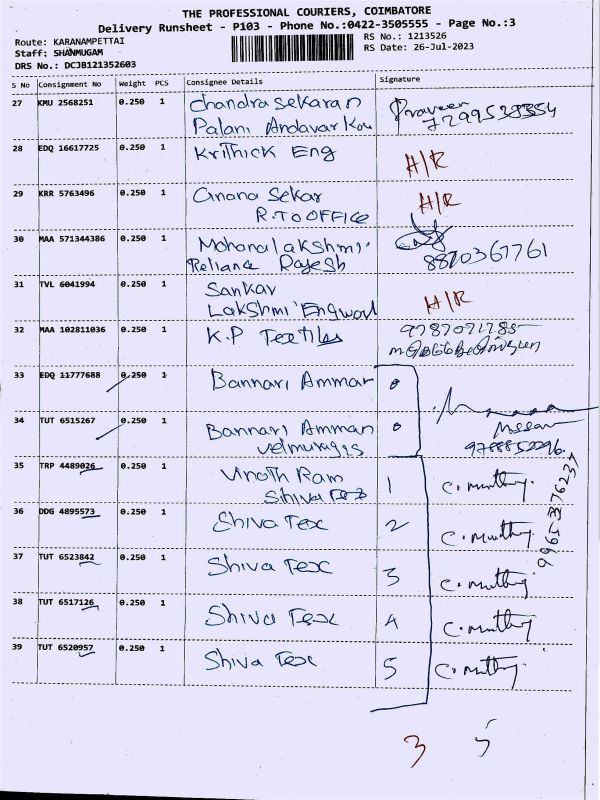 THE PROFESSIONAL COURIERS, COIMBATORE
Delivery Runsheet - P103 - Phone No.:0422-3505555 - Page No.:3
Route: KARANAMPETTAI
Staff: SHANMUGAM
DRS No.: DCJB121352603
RS No.: 1213526
RS Date: 26-Jul-2023
S No Consignment No Weight PCS Consignee Details Signature
27 KMU 2568251 0.250 1 Chandra Sekaran Praveen
Palani Andavar 7299538354
28 EDQ 16617725 0.250 1 Krithick Eng H/R
29 KRR 5763496 0.250 1 Gnana Sekar H/R
R.TO OFFICE
30 MAA 571344386 0.250 1 Mohanalakshmi
Reliance Rajesh 8870367761
31 TVL 6041994 0.250 1 Sankar
Lakshmi Engwod H/R
32 MAA 102811036 0.250 1 K.P Textiles 9787071785
33 EDQ 11777688 0.250 1 Bannari Amman 0
34 TUT 6515267 0.250 1 Bannari Amman 0
Velmurugis
35 TRP 4489026 0.250 1 Vinoth Ram 1 C. Muthy
Shiva Tex
36 DDG 4895573 0.250 1 Shiva Tex 2 C. Muthy
37 TUT 6523842 0.250 1 Shiva Tex 3 C. Muthy
38 TUT 6517126 0.250 1 Shiva Tex 4 C. Muthy
39 TUT 6520957 0.250 1 Shiva Tex 5 C. Muthy
3 5